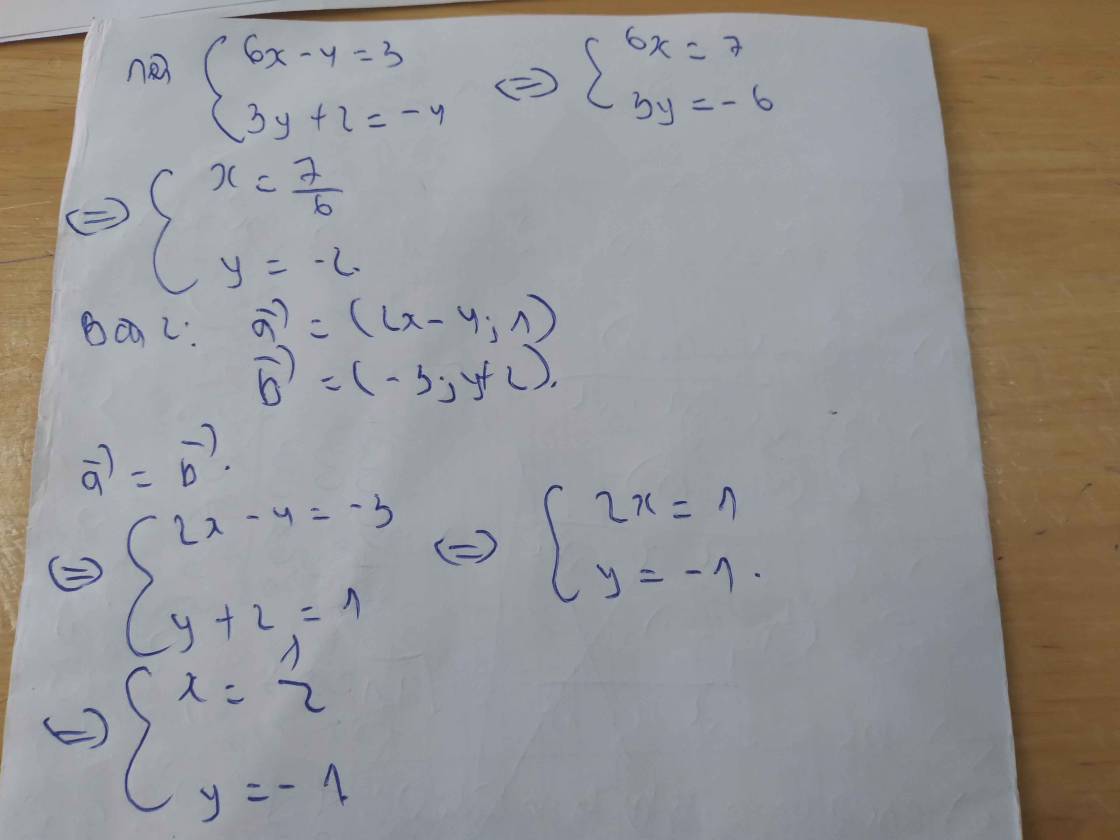 { 6x - 4 = 3
3y + 2 = -4 ⇔ { 6x = 7
3y = -6
⇔ { x = 7/6
y = -2.
Bài 2: a⃗ = (2x - 4; 1)
b⃗ = (-3; y+2).
a⃗ = b⃗.
⇔ { 2x - 4 = -3
y + 2 = 1 ⇔ { 2x = 1
y = -1.
⇔ { x = 1/2
y = -1